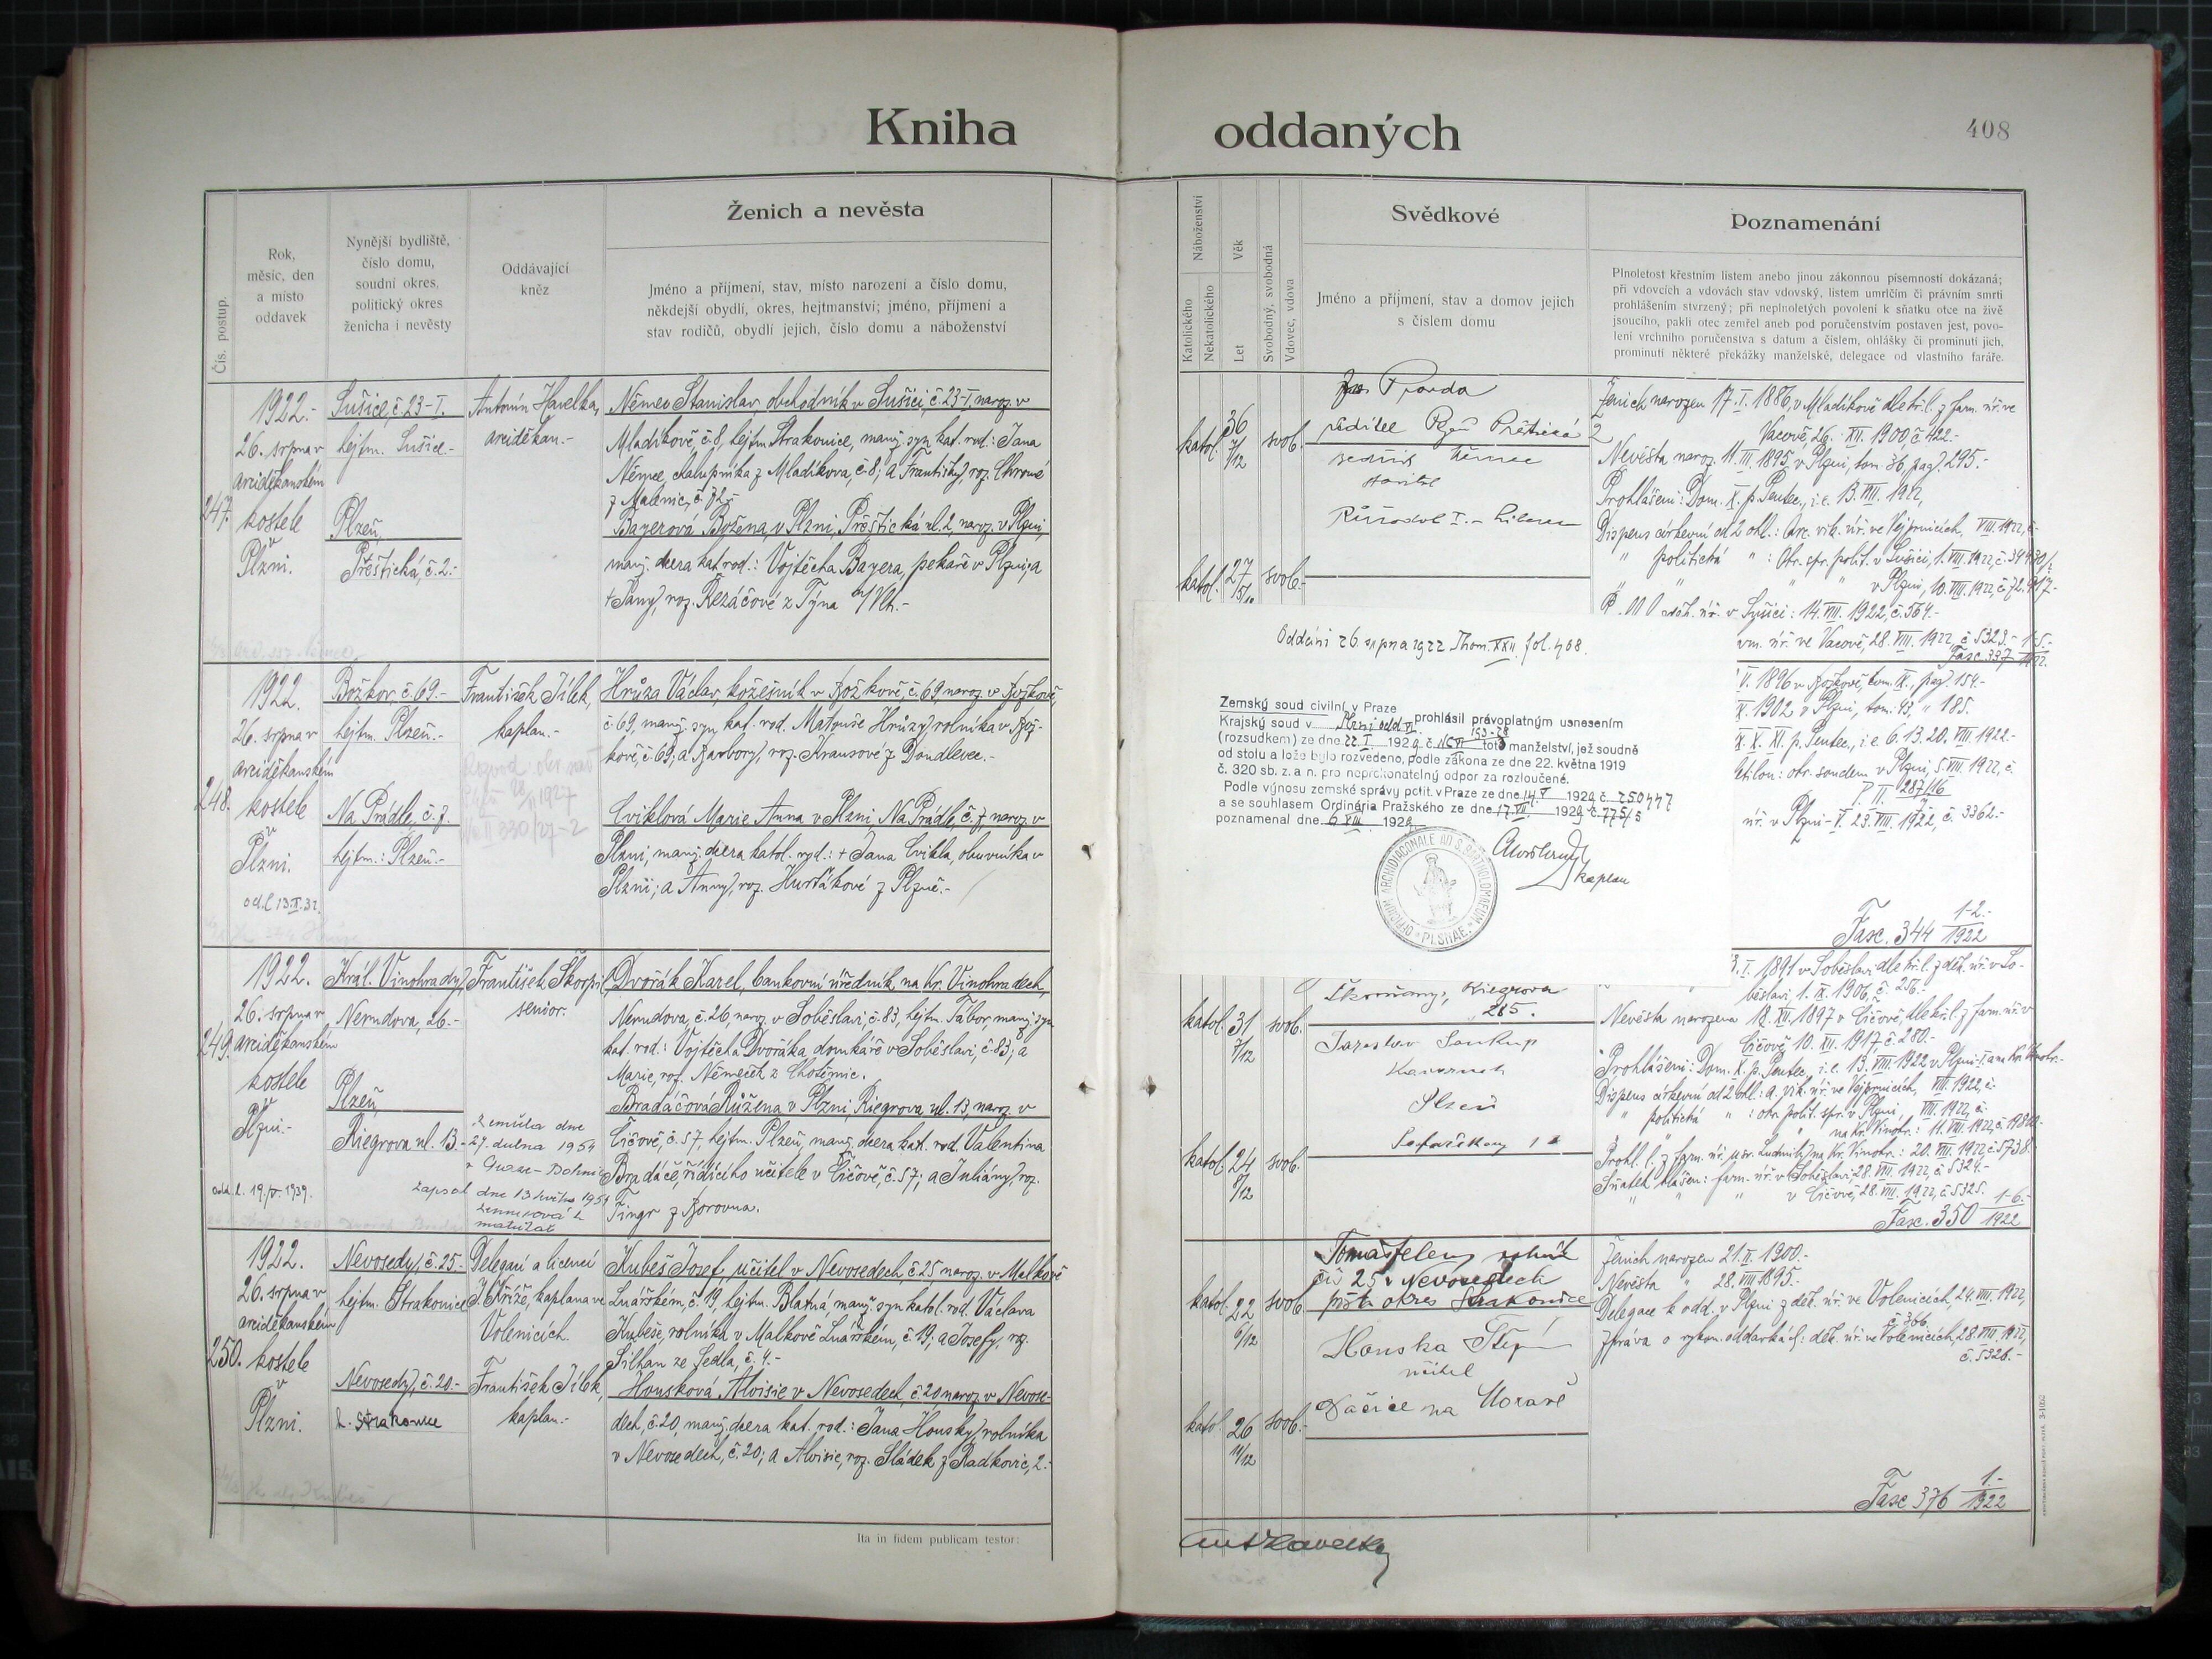 Kniha
oddaných
408
Čís. postup.
Rok,
měsíc, den
a místo
oddavek
Nynější bydliště,
číslo domu,
soudní okres,
politický okres
ženicha i nevěsty
Oddávající
kněz
Ženich a nevěsta
Jméno a příjmení, stav, místo narození a číslo domu,
někdejší obydlí, okres, hejtmanství; jméno, příjmení a
stav rodičů, obydlí jejich, číslo domu a náboženství
247.
1922.-
26. srpna v
arciděkanském
kostele
v
Plzni.
Sušice, č. 23-I.
hejtm. Sušice.-
Plzeň,
Přeštická, č. 2.-
Antonín Havelka,
arciděkan.-
Němec Stanislav, obchodník v Sušici, č. 23-I, naroz. v
Mladíkově, č. 8, hejtm. Strakonice, manž. syn kat. rod.: Jana
Němce, chalupníka z Mladíkova, č. 8; a Františky, roz.
z Malenic, č. 72.-
Bayerová Božena, v Plzni, Přeštická ul. 2, naroz. v Plzni,
manž. dcera kat. rod.: Vojtěcha Bayera, pekaře v Plzni; a
+ Jany, roz. Řezáčové z Týna n/Vlt.-
248.
1922.
26. srpna v
arciděkanském
kostele
v
Plzni.
odl. 13.
Božkov, č. 69.-
hejtm. Plzeň.-
Na Prádle, č. 7.
hejtm.: Plzeň.-
František Jílek,
kaplan.-
1927
330/27-2
Hrůza Václav, kožešník v Božkově, č. 69, naroz. v Božkově,
č. 69, manž. syn kat. rod. Matouše Hrůzy, rolníka v Bož-
kově, č. 69; a Barbory, roz. Krausové z Doudlevec.-
Cviklová Marie Anna v Plzni, Na Prádle, č. 7, naroz. v
Plzni, manž. dcera katol. rod.: + Jana Cvikla, obuvníka v
Plzni; a Anny, roz. Hurťákové z Plzně.-
249.
1922.
26. srpna v
arciděkanském
kostele
v
Plzni.-
odd. l. 19./V. 1939.
Král. Vinohrady,
Nerudova, 26.-
Plzeň,
Riegrova ul. 13.-
František Škorpil,
senior.
Zemřela dne
27. dubna 1954
zapsal dne 13. května 1954
matrikář
Dvořák Karel, bankovní úředník, na Kr. Vinohradech,
Nerudova, č. 26, naroz. v Soběslavi, č. 83, hejtm. Tábor, manž. syn
kat. rod.: Vojtěcha Dvořáka, domkáře v Soběslavi, č. 83; a
Marie, roz. Němeček z Chotěmic.
Bradáčová Růžena v Plzni, Riegrova, ul. 13, naroz. v
Čičově, č. 57, hejtm. Plzeň, manž. dcera kat. rod. Valentina
Bradáče, řídícího učitele v Čičově, č. 57; a Juliány, roz.
Fingr z Borovna.
250.
1922.
26. srpna v
arciděkanském
kostele
v
Plzni.
Nevosedy, č. 25.-
hejtm. Strakonice
Nevosedy, č. 20.-
h. Strakonice
Delegací a licencí
J. Kříže, kaplana ve
Volenicích.
František Jílek,
kaplan.-
Kubeš Josef, učitel v Nevosedech č. 25 naroz. v Malkově
Lnářském, č. 19, hejtm. Blatná, manž. syn katol. rod. Václava
Kubeše, rolníka v Malkově Lnářském, č. 19; a Josefy, roz.
Silhan ze Sedla, č. 4.-
Housková Aloisie v Nevosedech, č. 20 naroz. v Nevose-
dech, č. 20, manž. dcera kat. rod.: Jana Housky, rolníka
v Nevosedech, č. 20; a Aloisie, roz. Sládek z Radkovic, 2.-
Ita in fidem publicam testor:
Náboženství
Katolického
Nekatolického
Věk
Let
Svobodný, svobodná
Vdovec, vdova
Svědkové
Jméno a příjmení, stav a domov jejich
s číslem domu
Poznamenání
Plnoletost křestním listem anebo jinou zákonnou písemností dokázaná;
při vdovcích a vdovách stav vdovský, listem umrlčím či právním smrti
prohlášením stvrzený; při neplnoletých povolení k sňatku otce na živě
jsoucího, pakli otec zemřel aneb pod poručenstvím postaven jest, povo-
lení vrchního poručenstva s datum a číslem, ohlášky či prominutí jich,
prominutí některé překážky manželské, delegace od vlastního faráře.
katol. 36 7/12 svob.
Pravda
ředitel Plzeň Přeštická 2
katol. 27 5/12 svob.
Ženich narozen 17. I. 1886, v Mladíkově dle kř. l. z far. úř. ve
Vacově, 26. XII. 1900 č. 422.-
Nevěsta naroz. 11. III. 1895 v Plzni, tom. 36, pag. 295.-
Prohlášení: Dom. X. p. Pentec., i. e. 13. VIII. 1922,
Dispens církevní od 2 ohl.: Arc. vik. úř. ve Vejprnicích, VIII. 1922, č.-
" politická " : Okr. spr. polit. v Sušici, 1. VIII. 1922, č.
v Plzni, 10. VIII. 1922, č.
děk. úř. v Sušici: 14. VIII. 1922, č. 564.-
far. úř. ve Vacově, 28. VIII. 1922, č. 5323.- 1-5.-
Fasc. 337 1922.
Oddáni 26 srpna 1922 Thom. XXII fol. 408.
Zemský soud civilní v Praze
Krajský soud v Plzni odd. VI. prohlásil právoplatným usnesením
(rozsudkem) ze dne 22. I. 1929 č. toto manželství, jež soudně
od stolu a lože bylo rozvedeno, podle zákona ze dne 22. května 1919
č. 320 sb. z. a n. pro nepřekonatelný odpor za rozloučené.
Podle výnosu zemské správy polit. v Praze ze dne 14. V 1929 č. 250447
a se souhlasem Ordinária Pražského ze dne 17. VII. 1929 č. 7757/5
poznamenal dne 6 XIII 1929.
kaplan
OFFICIUM ARCHIDIACONALE AD S. BARTHOLOMAEUM * PLSNAE *
V. 1896 v Božkově, tom. IX., pag. 154.-
1902 v Plzni, tom. 43, " 185.
X. X. XI. p. Pentec., i. e. 6. 13. 20. VIII. 1922.-
okr. soudem v Plzni, 5. VIII. 1922, č.
P. II. 287/16
úř. v Plzni-V. 23. VIII. 1922, č. 3362.-
Fasc. 344 1-2.- 1922
katol. 31 7/12 svob.
Riegrova
285.
Jaroslav Soukup
Plzeň
katol. 24 8/12 svob.
I. 1891 v Soběslavi dle kř. l. z děk. úř. v So-
běslavi, 1. IX. 1906, č. 256.-
Nevěsta narozena 18. XII. 1897 v Čičově, dle kř. l. z far. úř. v
Čičově 10. XII. 1917 č. 280.-
Prohlášení: Dom. X. p. Pentec., i. e. 13. VIII. 1922 v Plzni-I a na Kr. Vinohr.-
Dispens církevní od 2 ohl.: a. vik. úř. ve Vejprnicích, VIII. 1922, č.
" politická " : okr. polit. spr. v Plzni, VIII. 1922, č.
na Kr. Vinohr.: 11. VIII. 1922, č.
Prohl. l. z farn. úř. u sv. Ludmily na Kr. Vinohr.: 20. VIII. 1922, č. 5738.-
Sňatek hlášen: farn. úř. v Soběslavi, 28. VIII. 1922, č. 5324.-
" " " v Čičově, 28. VIII. 1922, č. 5325. 1-6.-
Fasc. 350 1922
katol. 22 6/12 svob.
Tomáš rolník
čís 25 v Nevosedech
pošt. okres Strakonice
Houska Štěp
učitel
Dačice na Moravě
katol. 26 11/12 svob.-
Ženich narozen 21. II. 1900.-
Nevěsta " 28. VIII 1895.-
Delegace k odd. v Plzni z děk. úř. ve Volenicích, 24. VIII. 1922,
č. 366.
Zpráva o vykon. oddavkách: děk. úř. ve Volenicích, 28. VIII. 1922,
č. 5326.-
Fasc 376 1.- 1922
Ant Havelka